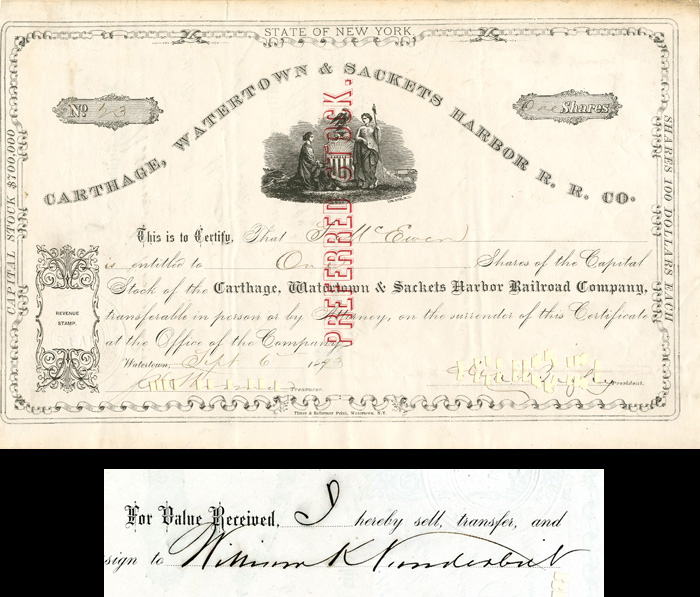 STATE OF NEW YORK.
CARTHAGE, WATERTOWN & SACKETS HARBOR R. R. CO.
No 43
One Shares
CAPITAL STOCK $700,000
SHARES 100 DOLLARS EACH
PREFERRED STOCK.
This is to Certify, That McEwen
is entitled to One Shares of the Capital
Stock of the Carthage, Watertown & Sackets Harbor Railroad Company,
transferable in person or by Attorney, on the surrender of this Certificate
at the Office of the Company
REVENUE
STAMP.
Watertown, Sept 6 1873
Treasurer.
President.
Times & Reformer Print, Watertown, N.Y.
For Value Received, I hereby sell, transfer, and
sign to William K Vanderbilt